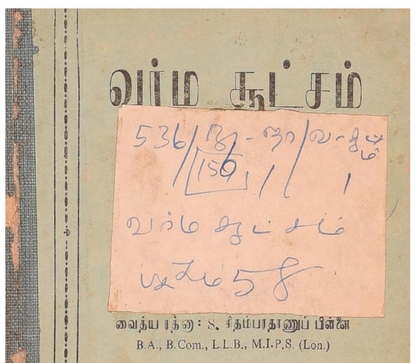 வர்ம சூட்சம்
536/
156
வர்ம சூட்சம்
58
வைத்ய ரத்னா : S. சிதம்பரதாணுப் பிள்ளை
B.A., B.Com., L.L.B., M.I.P.S. (Lon.)